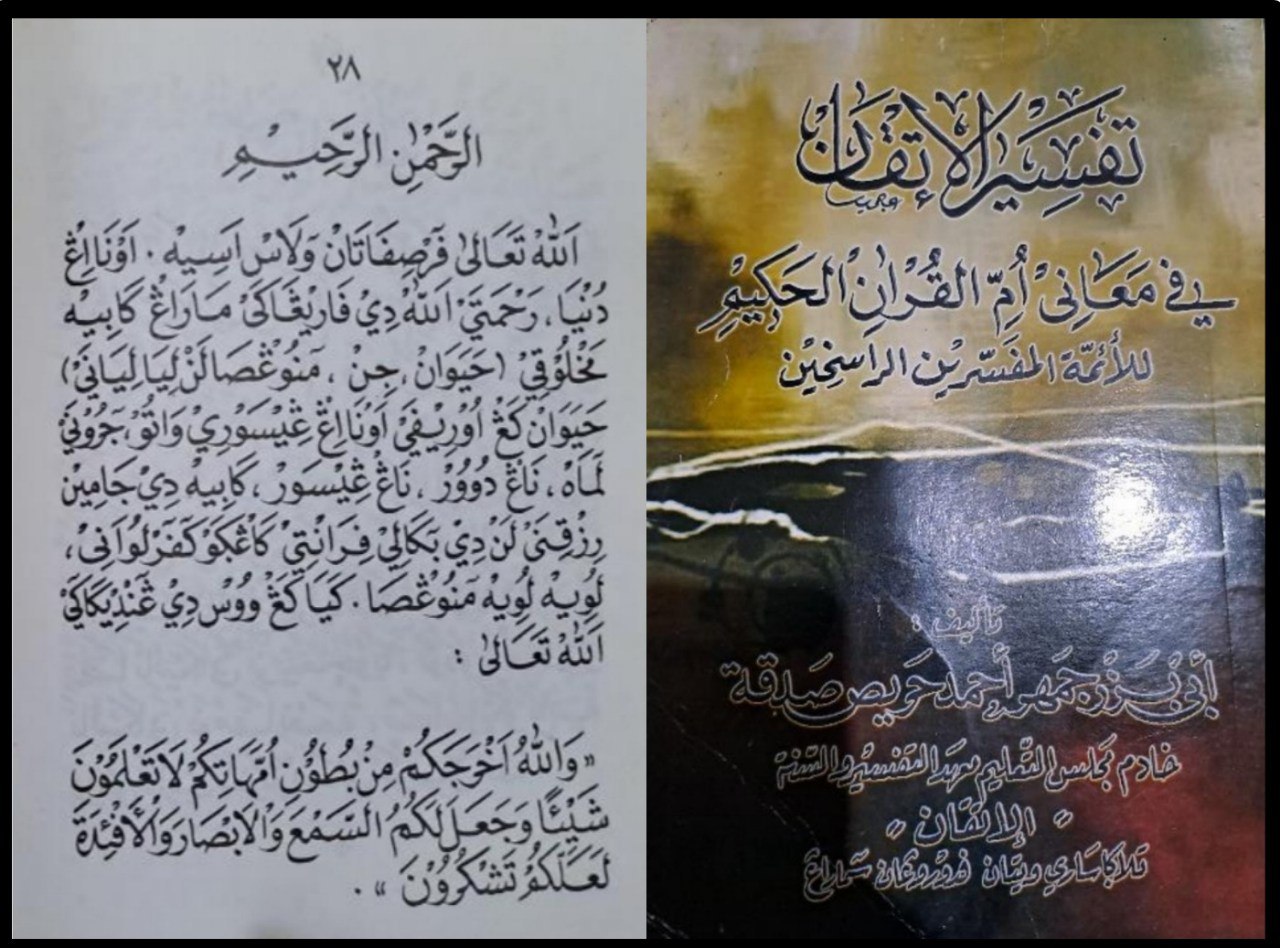 ٢٨
الرَّحْمٰنِ الرَّحِيْمِ
اَللّٰهُ تَعَالىٰ فَرْصِفَاتَانْ وَلَاسْ اَسِيْهْ . اَوْنَا اِڠْ
دُنْيَا، رَحْمَتَىْ اَللّٰهْ دِيْ فَارِيْڠَاكَىْ مَارَاڠْ كَابِيْهْ
مَخْلُوْقِيْ (حَيَوَانْ، جِنْ، مَنُوْڠْصَا لَنْ لِيَا لِيَانَىْ)
حَيَوَانْ كَڠْ اُوْرِيْفَىْ اَوْنَا اِڠْ ڠِيْسَوْرِيْ وَاتُوْ، جَرَوْنَىْ
لَمَاهْ، نَاڠْ دُوُوْرْ، نَاڠْ ڠِيْسَوْرْ، كَابِيْهْ دِيْ جَامِيْنْ
رِزْقِنَىْ لَنْ دِيْ بَكَالِيْ فِرَانْتِيْ كَاڠْكَوْ كَفَرْلُوَانَىْ،
لُوِيْهْ لُوِيْهْ مَنُوْڠْصَا. كَيَا كَڠْ وُوْسْ دِيْ ڠَنْدِيْكَاكَىْ
اَللّٰهُ تَعَالىٰ :
«وَاللّٰهُ اَخْرَجَكُمْ مِنْ بُطُوْنِ اُمَّهَاتِكُمْ لَا تَعْلَمُوْنَ
شَيْئًا وَجَعَلَ لَكُمُ السَّمْعَ وَالْاَبْصَارَ وَالْأَفْئِدَةَ
لَعَلَّكُمْ تَشْكُرُوْنَ» .
تَفْسِيْرُ الْإِتْقَانْ
فِيْ مَعَانِىْ أُمِّ الْقُرْاٰنِ الْحَكِيْمِ
للأئمّة المفسّرين الراسخين
تأليف :
أبي بزرجمهر أحمد حويص صدقة
خادم مجلس التعليم معهد التفسير والسنة
" الإتقان "
تلاكاساري ويتان فدوروڠان سماراڠ